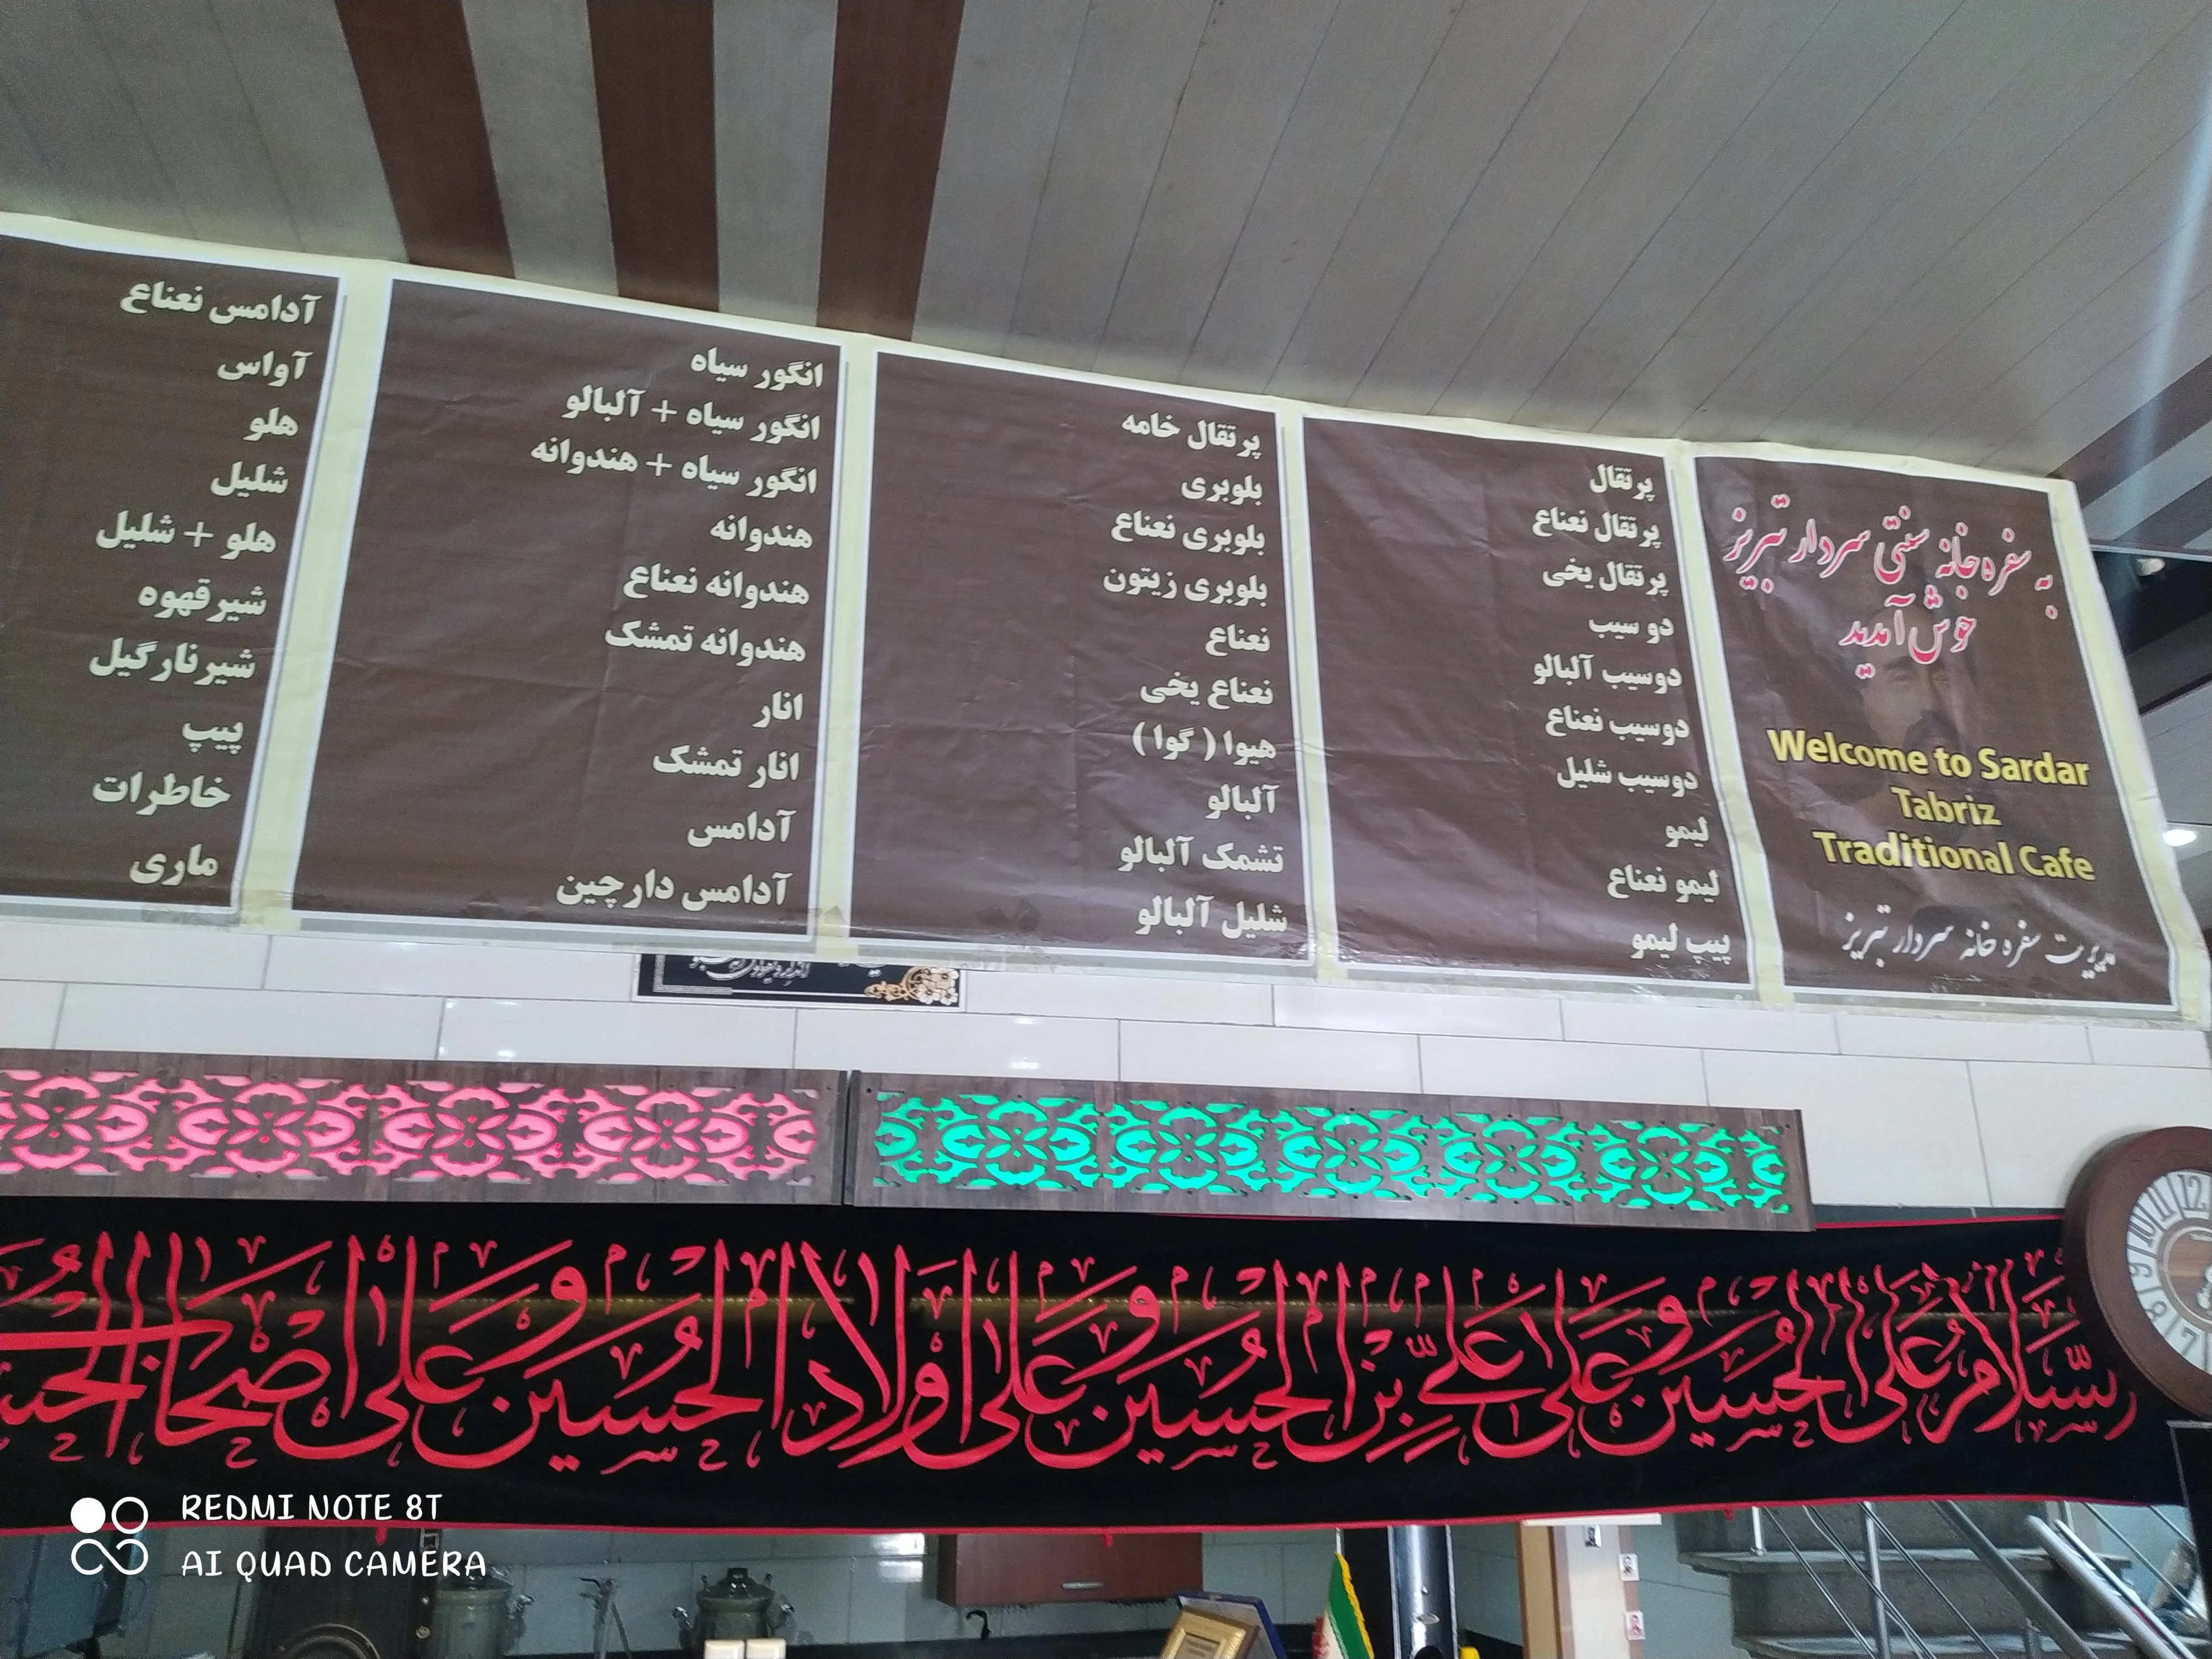 به سفره خانه سنتی سردار تبریز
خوش آمدید
Welcome to Sardar
Tabriz
Traditional Cafe
مدیریت سفره خانه سردار تبریز
پرتقال
پرتقال نعناع
پرتقال یخی
دو سیب
دوسیب آلبالو
دوسیب نعناع
دوسیب شلیل
لیمو
لیمو نعناع
پیپ لیمو
پرتقال خامه
بلوبری
بلوبری نعناع
بلوبری زیتون
نعناع
نعناع یخی
هیوا ( گوا )
آلبالو
تشمک آلبالو
شلیل آلبالو
انگور سیاه
انگور سیاه + آلبالو
انگور سیاه + هندوانه
هندوانه
هندوانه نعناع
هندوانه تمشک
انار
انار تمشک
آدامس
آدامس دارچین
آدامس نعناع
آواس
هلو
شلیل
هلو + شلیل
شیرقهوه
شیرنارگیل
پیپ
خاطرات
ماری
السلام علی الحسین و علی علی بن الحسین و علی اولاد الحسین و علی اصحاب
12
11
10
9
8
7
REDMI NOTE 8T
AI QUAD CAMERA